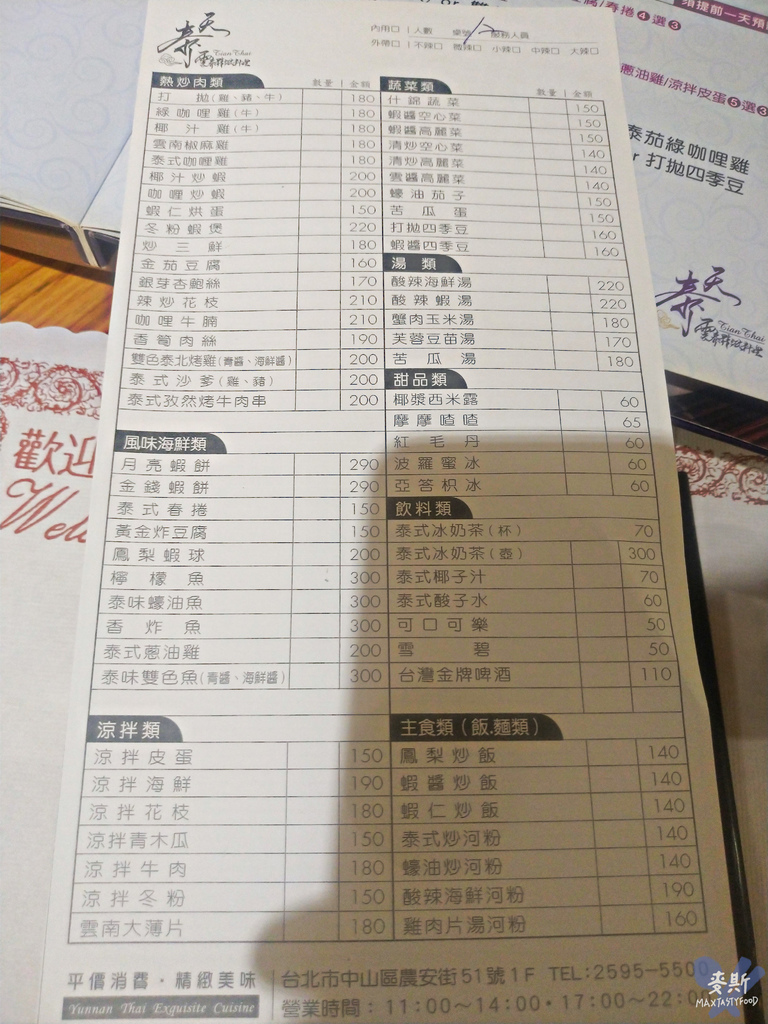 天泰
Tian Thai
雲泰料理
內用□ 人數 桌號 服務人員
外帶□ 不辣□ 微辣□ 小辣□ 中辣□ 大辣□
熱炒肉類 數量 金額
打拋(雞、豬、牛) 180
綠咖哩雞(牛) 180
椰汁雞(牛) 180
雲南椒麻雞 180
泰式咖哩雞 180
椰汁炒蝦 200
咖哩炒蝦 200
蝦仁烘蛋 150
冬粉蝦煲 220
炒三鮮 180
金茄豆腐 160
銀芽杏鮑絲 170
辣炒花枝 210
咖哩牛腩 210
香筍肉絲 190
雙色泰北烤雞(青醬、海鮮醬) 200
泰式沙爹(雞、豬) 200
泰式孜然烤牛肉串 200
風味海鮮類
月亮蝦餅 290
金錢蝦餅 290
泰式春捲 150
黃金炸豆腐 150
鳳梨蝦球 200
檸檬魚 300
泰味蠔油魚 300
香炸魚 300
泰式蔥油雞 200
泰味雙色魚(青醬、海鮮醬) 300
涼拌類
涼拌皮蛋 150
涼拌海鮮 190
涼拌花枝 180
涼拌青木瓜 150
涼拌牛肉 180
涼拌冬粉 150
雲南大薄片 180
蔬菜類 數量 金額
什錦蔬菜 150
蝦醬空心菜 150
蝦醬高麗菜 150
清炒空心菜 140
清炒高麗菜 140
雲醬高麗菜 140
蠔油茄子 150
苦瓜蛋 150
打拋四季豆 160
蝦醬四季豆 160
湯類
酸辣海鮮湯 220
酸辣蝦湯 220
蟹肉玉米湯 180
芙蓉豆苗湯 170
苦瓜湯 180
甜品類
椰漿西米露 60
摩摩喳喳 65
紅毛丹 60
波羅蜜冰 60
亞答枳冰 60
飲料類
泰式冰奶茶(杯) 70
泰式冰奶茶(壺) 300
泰式椰子汁 70
泰式酸子水 60
可口可樂 50
雪碧 50
台灣金牌啤酒 110
主食類(飯.麵類)
鳳梨炒飯 140
蝦醬炒飯 140
蝦仁炒飯 140
泰式炒河粉 140
蠔油炒河粉 140
酸辣海鮮河粉 190
雞肉片湯河粉 160
平價消費・精緻美味
Yunnan Thai Exquisite Cuisine
台北市中山區農安街51號1F TEL:2595-5500
營業時間：11:00～14:00・17:00～22:00
須提前一天預
腐/春捲④選③
蔥油雞/涼拌皮蛋⑤選③
泰茄綠咖哩雞
or 打拋四季豆
天泰
Tian Thai
歡迎
Wel
麥斯
MAXTASTYFOOD